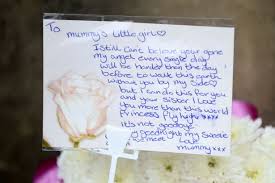 To mummy's little girl♡
I still can't believe your gone
my angel every single day
will be harder than the day
before to walk this earth
without you by my side
but I can do this for you
and your sister I love
you more than this world
Princess fly high xxx
it's not goodbye
goodnight my
Love
mummy xxx